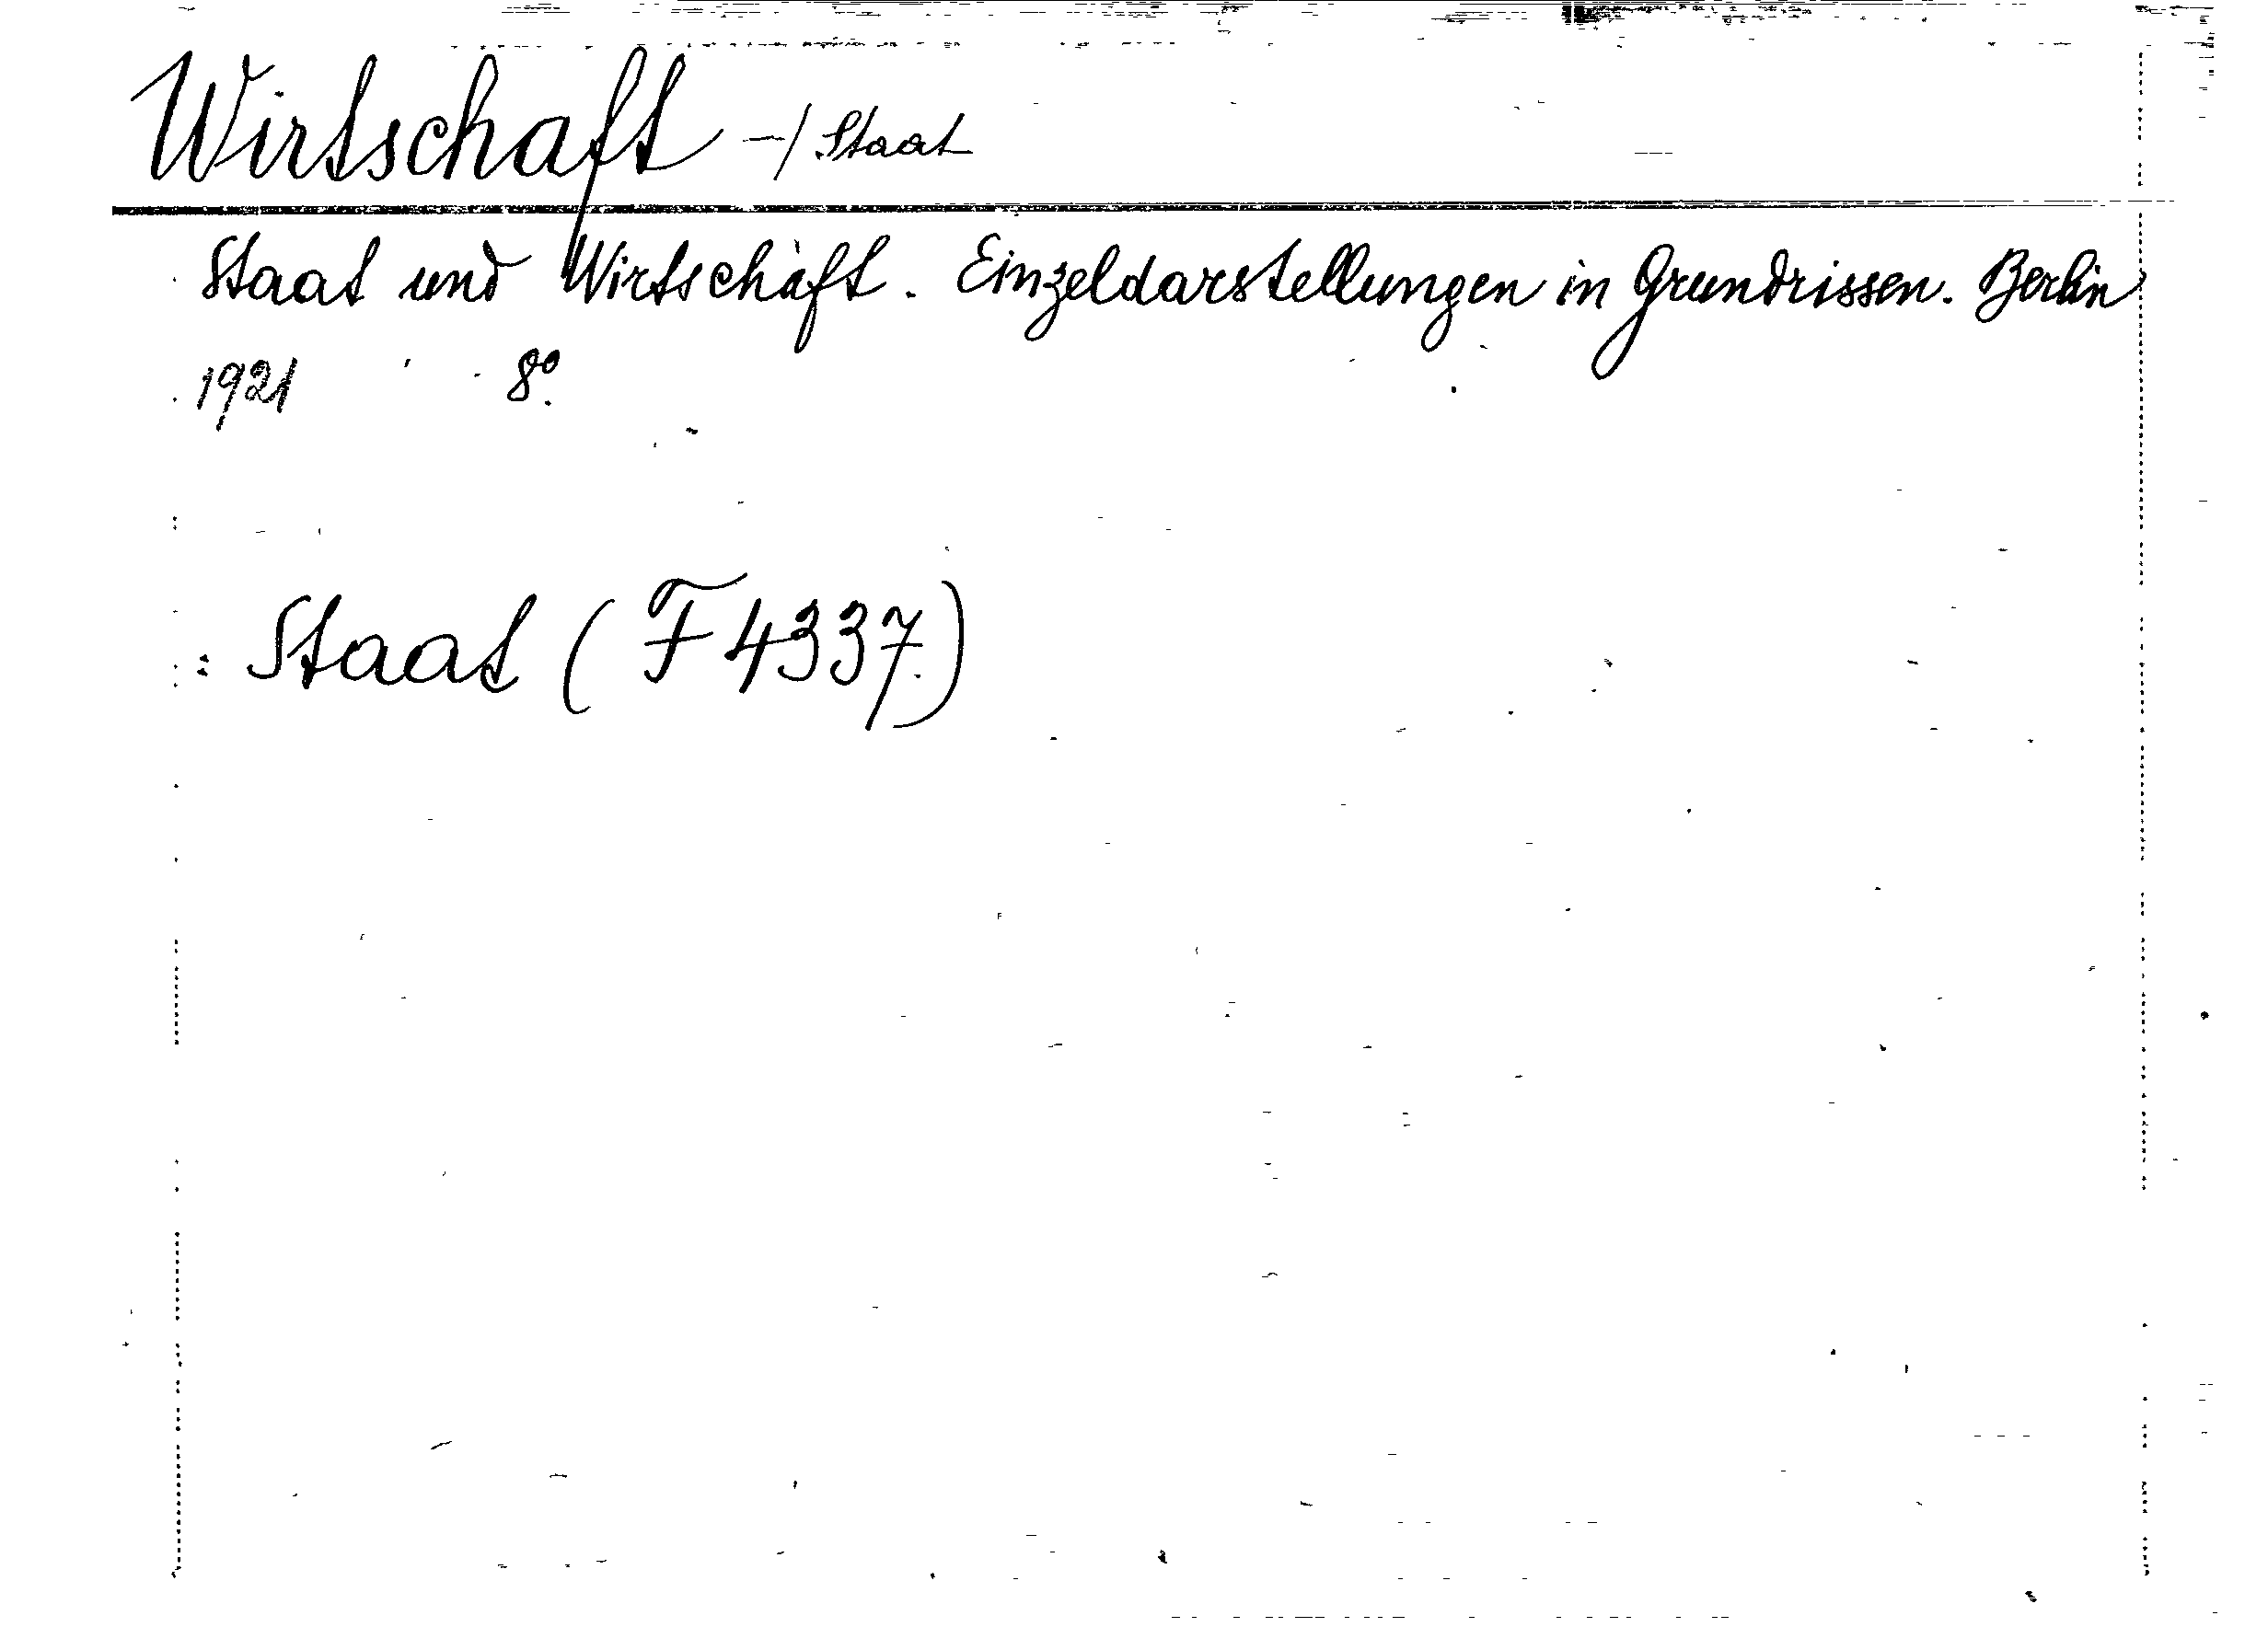 Wirtschaft -/ Staat
Staat und Wirtschaft. Einzeldarstellungen in Grundrissen. Berlin
1921 8°.
: Staat (F 4337.)